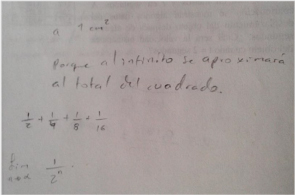 a 1 cm²
Porque al infinito se aproximará
al total del cuadrado.
1/2 + 1/4 + 1/8 + 1/16
lim 1/2ⁿ